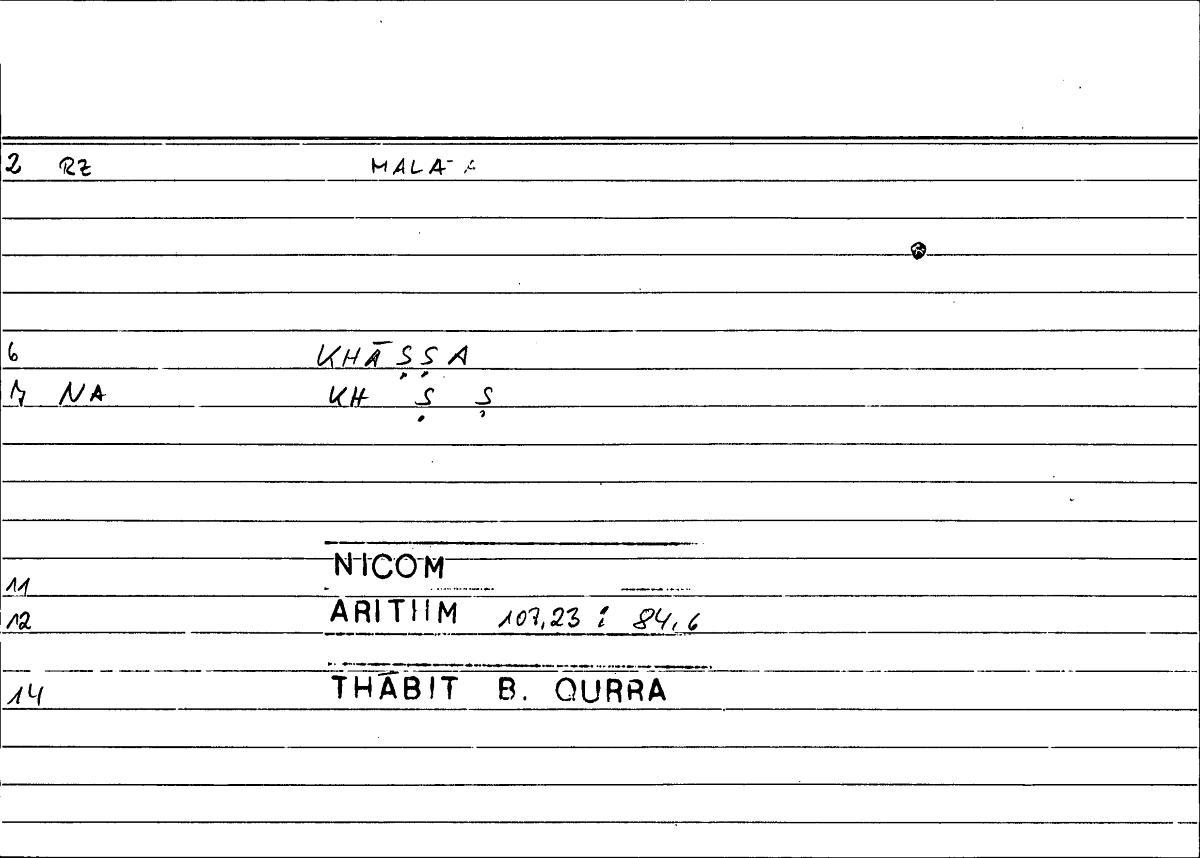 2 RZ
6 KHĀṢṢA
7 NA KH Ṣ Ṣ
11 NICOM
12 ARITHM 107,23 ; 84,6
14 THĀBIT B. QURRA